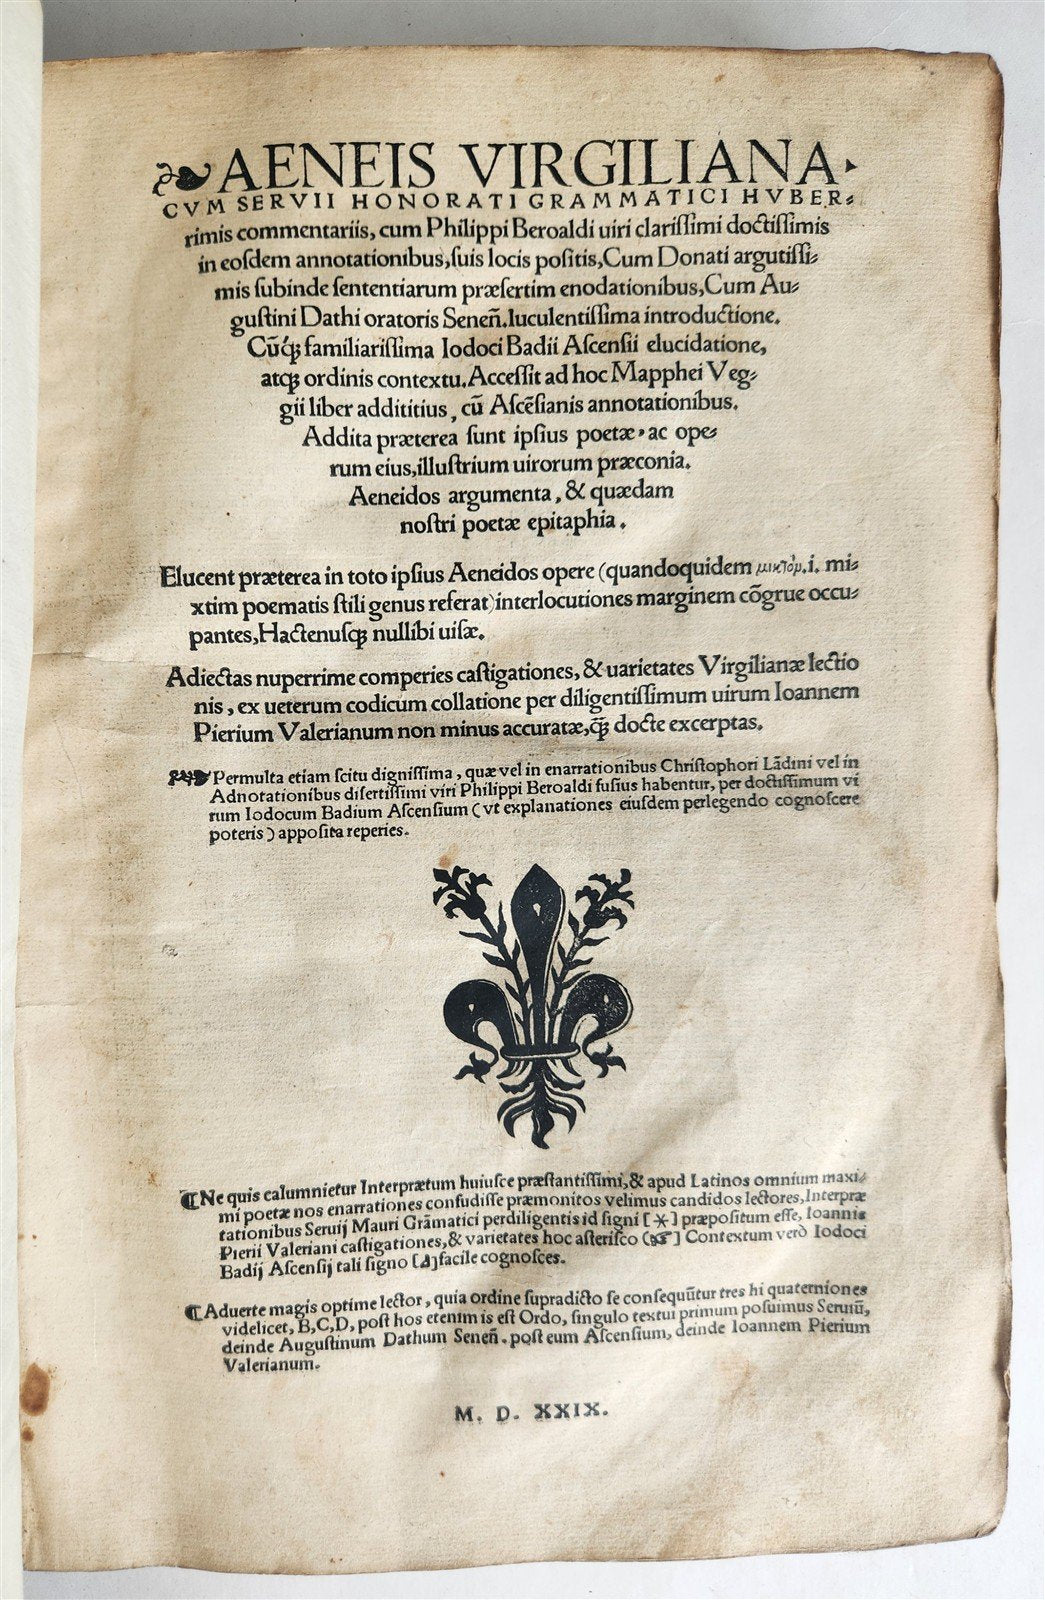 AENEIS VIRGILIANA.
CVM SERVII HONORATI GRAMMATICI HVBER-
rimis commentariis, cum Philippi Beroaldi uiri clariſſimi doctiſſimis
in eoſdem annotationibus, ſuis locis poſitis, Cum Donati argutiſſi-
mis ſubinde ſententiarum præſertim enodationibus, Cum Au-
guſtini Dathi oratoris Seneñ. luculentiſſima introductione.
Cũꝗ familiariſſima Iodoci Badii Aſcenſii elucidatione,
atꝗ ordinis contextu. Acceſſit ad hoc Mapphei Veg-
gii liber addititius, cũ Aſcẽſianis annotationibus.
Addita præterea ſunt ipſius poetæ, ac ope-
rum eius, illuſtrium uirorum præconia.
Aeneidos argumenta, & quædam
noſtri poetæ epitaphia.
Elucent præterea in toto ipſius Aeneidos opere (quandoquidem μικτὸν .i. mi-
xtim poematis ſtili genus referat) interlocutiones marginem cõgrue occu-
pantes, Hactenuſꝗ nullibi uiſæ.
Adiectas nuperrime comperies caſtigationes, & uarietates Virgilianæ lectio
nis, ex ueterum codicum collatione per diligentiſſimum uirum Ioannem
Pierium Valerianum non minus accuratæ, ꝗ̃ docte excerptas.
Permulta etiam ſcitu digniſſima, quæ vel in enarrationibus Chriſtophori Lãdini vel in
Adnotationibus diſertiſſimi viri Philippi Beroaldi fuſius habentur, per doctiſſimum vi
rum Iodocum Badium Aſcenſium (vt explanationes eiuſdem perlegendo cognoſcere
poteris) appoſita reperies.
¶Ne quis calumnietur Interprætum huiuſce præſtantiſſimi, & apud Latinos omnium maxi-
mi poetæ nos enarrationes confudiſſe præmonitos velimus candidos lectores, Interpræ
tationibus Seruij Mauri Grãmatici perdiligentis id ſigni [*] præpoſitum eſſe, Ioannis
Pierii Valeriani caſtigationes, & varietates hoc aſteriſco (☞] Contextum verò Iodoci
Badij Aſcenſij tali ſigno [] facile cognoſces.
¶Aduerte magis optime lector, quia ordine ſupradicto ſe conſequũtur tres hi quaterniones
videlicet, B, C, D, poſt hos etenim is eſt Ordo, ſingulo textui primum poſuimus Seruiũ,
deinde Auguſtinum Dathum Seneñ. poſt eum Aſcenſium, deinde Ioannem Pierium
Valerianum.
M. D. XXIX.